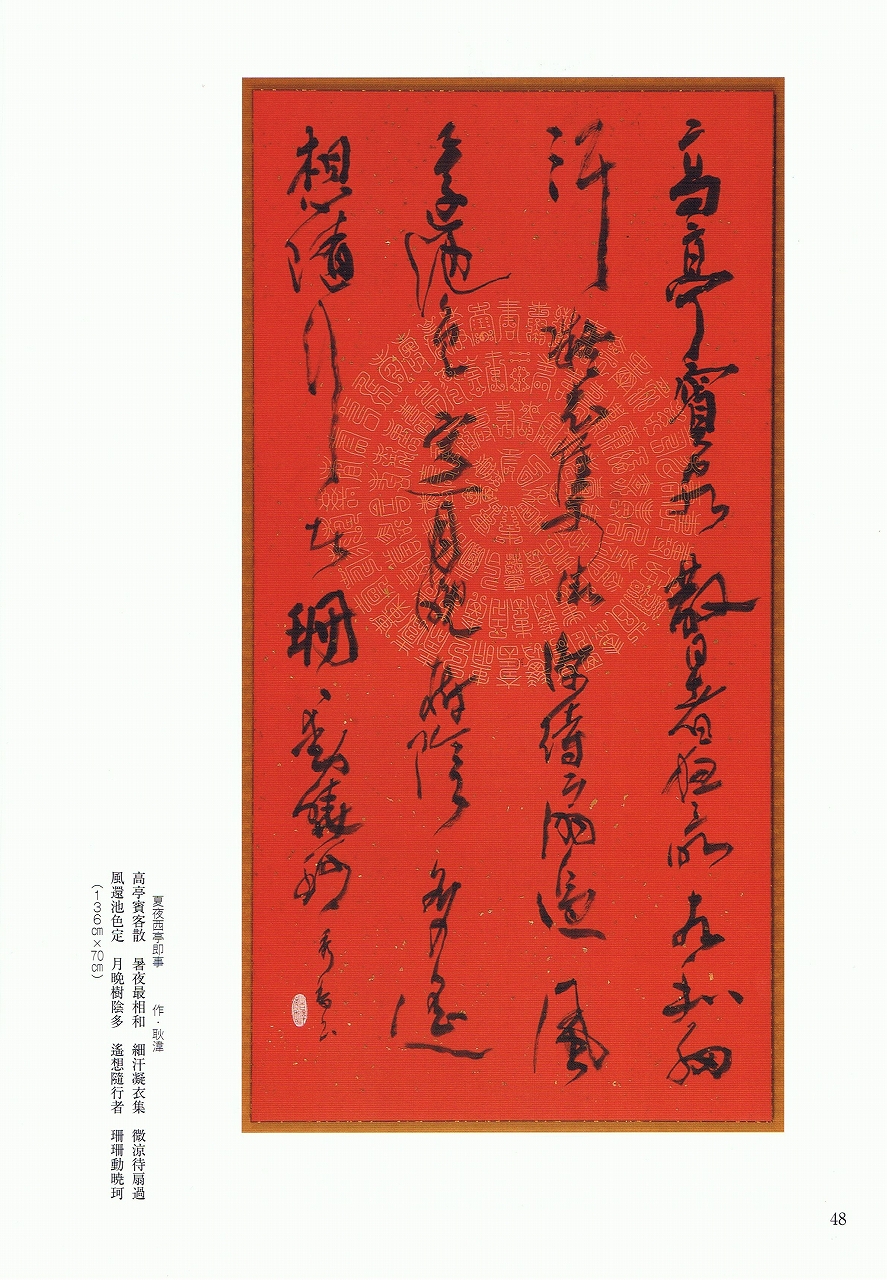 高亭賓客散暑夜最相和細
汗凝衣集微涼待扇過風
還池色定月晚樹陰多遙
想隨行者珊々動曉珂
夏夜西亭即事　作・耿湋
高亭賓客散　暑夜最相和　細汗凝衣集　微涼待扇過
風還池色定　月晩樹陰多　遙想隨行者　珊珊動曉珂
（136㎝×70㎝）
48